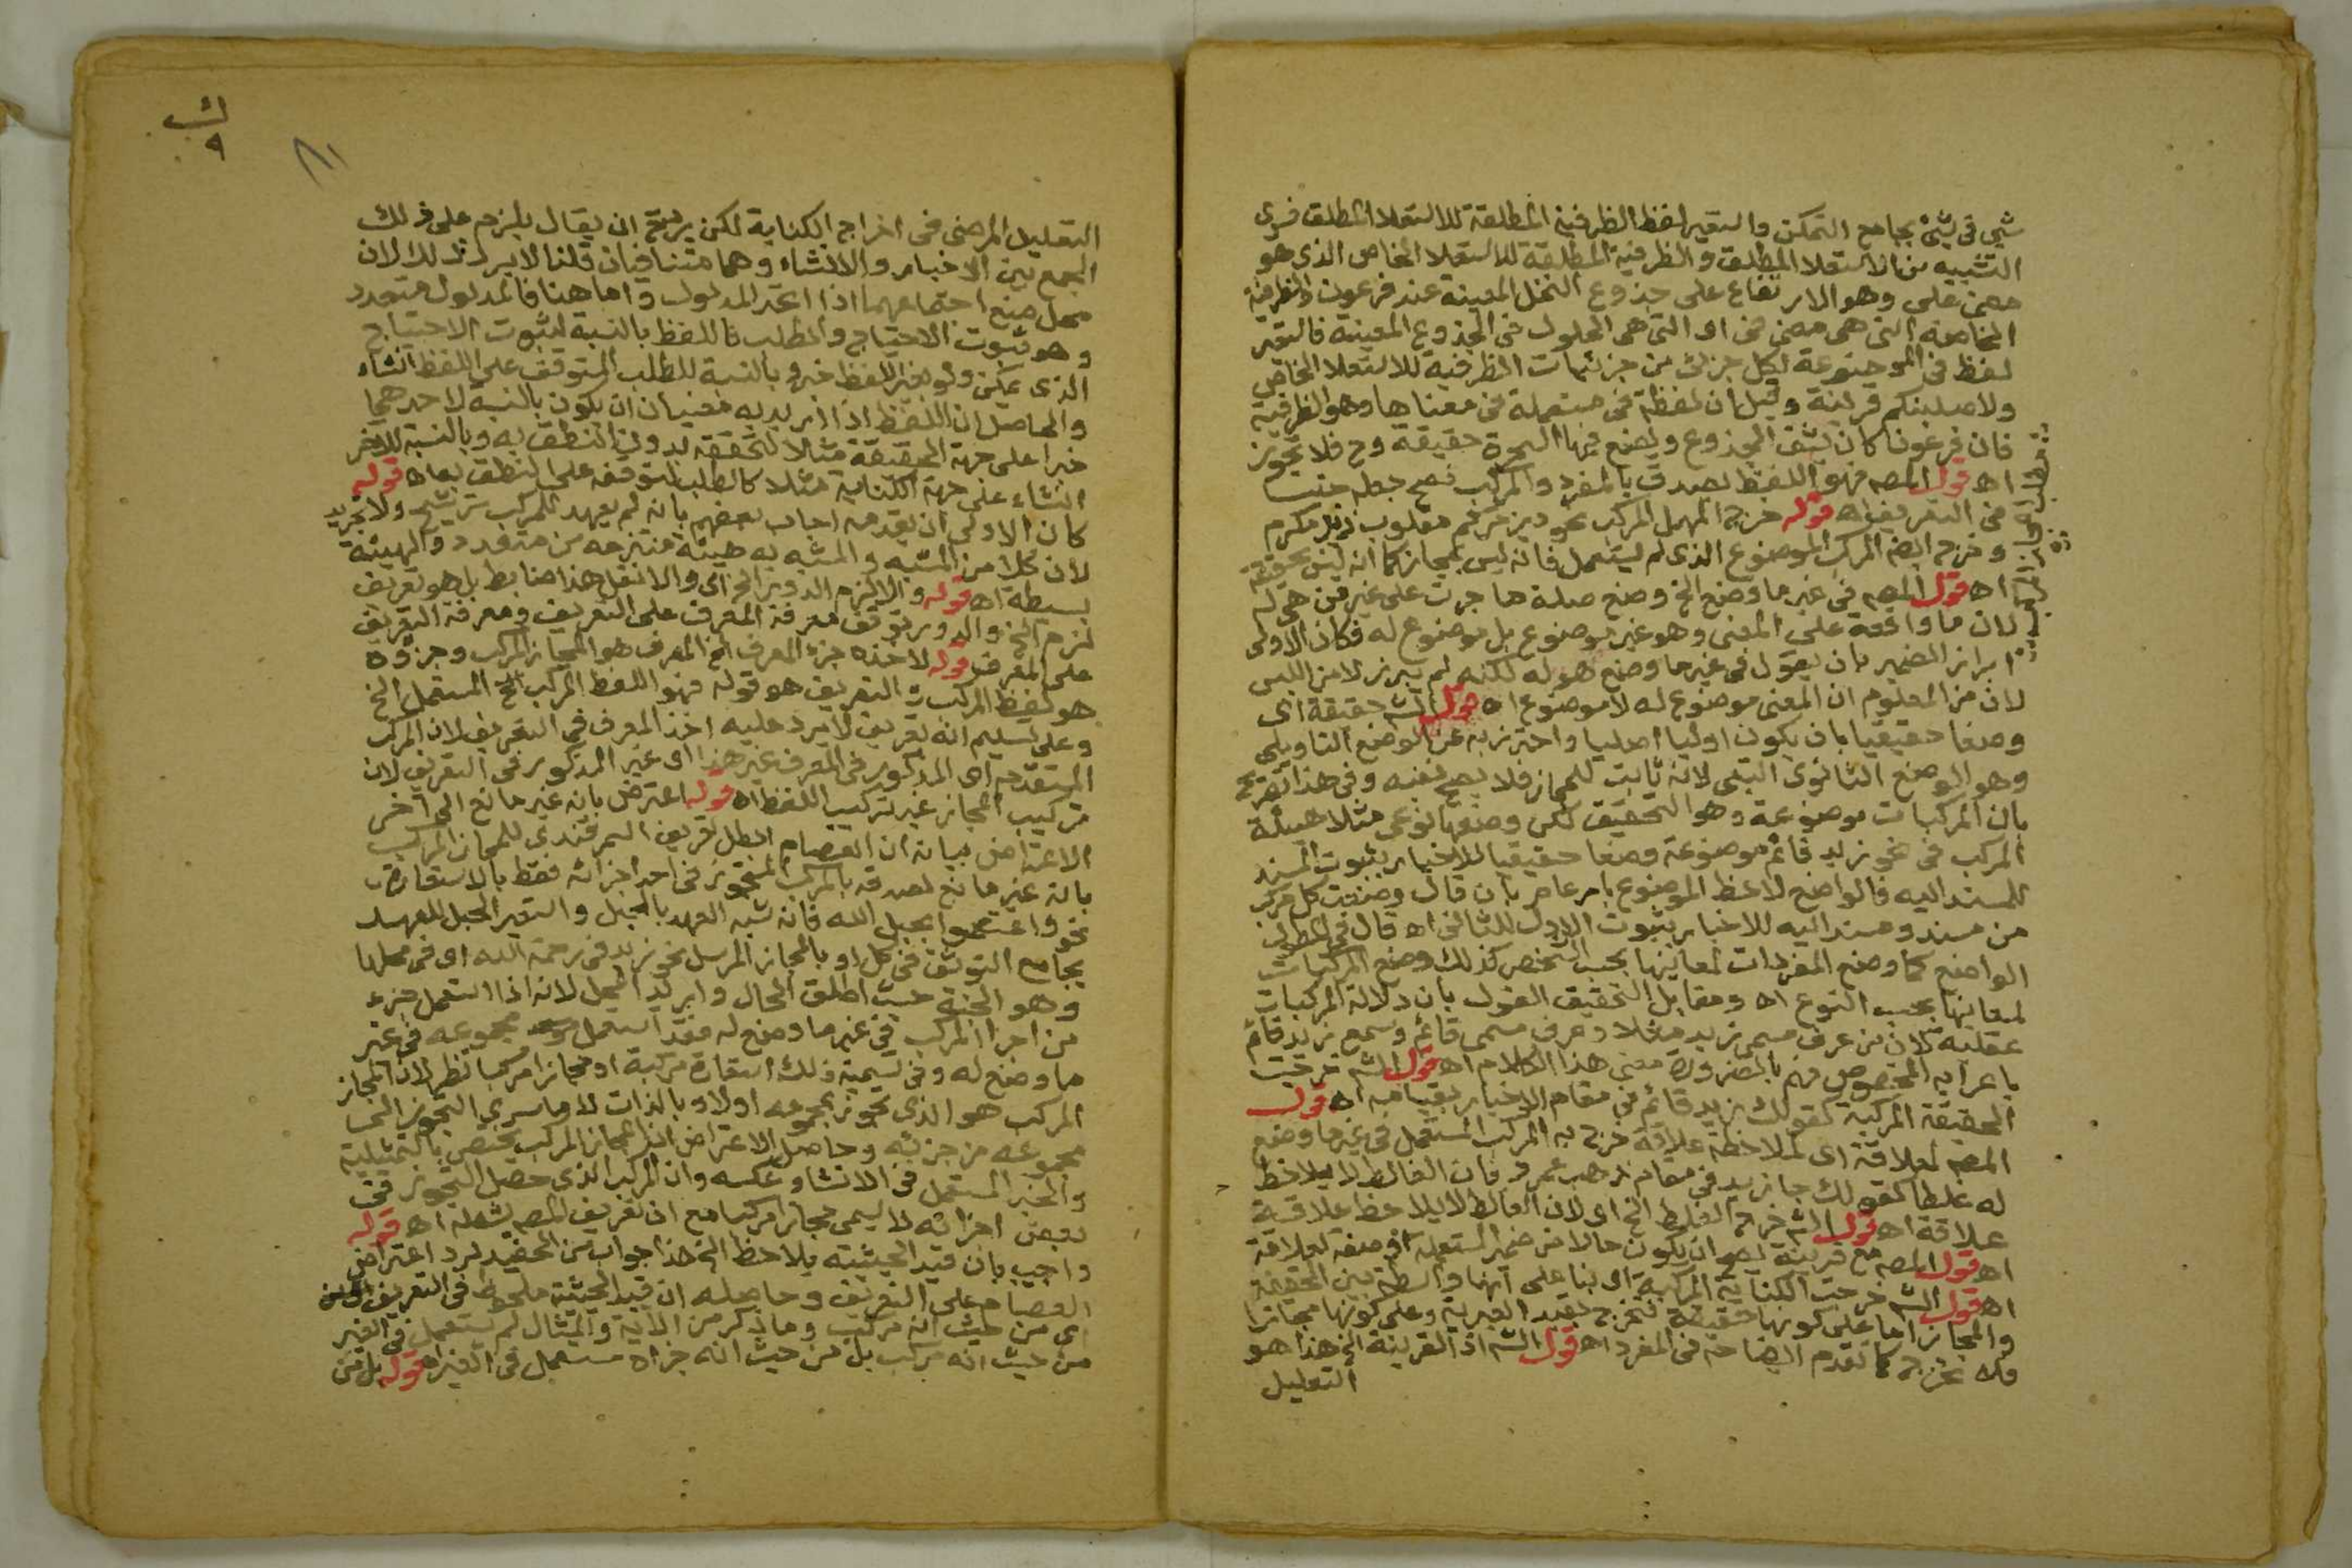 شي في شيئ بجامع التمكن واستعير لفظ الظرفية المطلقة للاستعلا المطلق فسرى
التشبيه من الاستعلا المطلق والظرفية المطلقة للاستعلا الخاص الذي هو
معنى على وهو الارتفاع على جذوع النخل المعينة عند فرعون والظرفية
الخاصة التي هي معنى في او التي هي الحلول في الجذوع المعينة فاستعير
لفظ في الموضوعة لكل جزئي من جزئيات الظرفية للاستعلا الخاص
ولاصلبنكم قرينة وقيل ان لفظة في مستعملة في معناها وهو الظرفية
فان فرعون كان يشق الجذوع ويضع فيها السحرة حقيقة وح فلا تجوز
اه قول المصه فهو اللفظ يصدق بالمفرد والمركب فصح جعله جنسا
في التعريف اه قوله خرج المهمل المركب نحو ديز مركم مقلوب زيد مكرم
وخرج ايضا المركب الموضوع الذي لم يستعمل فانه ليس بمجاز كما انه ليس بحقيقة
اه قول المصه في غير ما وضع الخ وضع صلة ما جرت على غير من هي له
لان ما واقعة على المعنى وهو غير موضوع بل موضوع له فكان الاولى
ابراز الضمير بان يقول في غير ما وضع هو له لكنه لم يبرز لامن اللبس
لان من المعلوم ان المعنى موضوع له لا موضوع اه قول الشه حقيقة اي
وضعا حقيقيا بان يكون اوليا اصليا واحترز به عن الوضع التاويلي
وهو الوضع الثانوي التبعي لانه ثابت للمجاز فلا يصح نفيه وفي هذا تصريح
بان المركبات موضوعة وهو التحقيق لكن وضعها نوعي مثلا هيئة
المركب في نحو زيد قائم موضوعة وضعا حقيقيا للاخبار بثبوت المسند
للمسند اليه فالواضع لاحظ الموضوع بامر عام بان قال وضعت كل مركب
من مسند ومسند اليه للاخبار بثبوت الاول للثاني اه قال في المطول
الواضع كما وضع المفردات لمعانيها بحسب الشخص كذلك وضع المركبات
لمعانيها بحسب النوع اه ومقابل التحقيق القول بان دلالة المركبات
عقلية لان من عرف مسمى زيد مثلا وعرف مسمى قائم وسمع زيد قائم
باعرابه المخصوص فهم بالضرورة معنى هذا الكلام اه قول الشه خرجت
الحقيقة المركبة كقولك زيد قائم في مقام الاخبار بقيامه اه قول
المصه لعلاقة اي لملاحظة علاقة خرج به المركب المستعمل في غير ما وضع
له غلطا كقولك جا زيد في مقام ذهب عمرو فان الغالط لا يلاحظ
علاقة اه قول الشه خرج الغلط الخ اي لان الغالط لا يلاحظ علاقة
اه قول المصه مع قرينة يصح ان يكون حالا من ضمير المستعمل او صفة لعلاقة
اه قول الشه خرجت الكناية المركبة اي بنا على انها واسطة بين الحقيقة
والمجاز اما على كونها حقيقة فتخرج بقيد الغيرية وعلى كونها مجازا
فلا تخرج كما تقدم ايضاحه في المفرد اه قول الشه اذ القرينة الخ هذا هو
التعليل
٨١
التعليل المرضي في اخراج الكناية لكن يرد ان يقال يلزم على ذلك
الجمع بين الاخبار والانشاء وهما متنافيان قلنا لا يرد ذلك لان
محل منع اجتماعهما اذا اتحد المدلول واما هنا فالمدلول متعدد
وهو ثبوت الاحتياج والطلب فاللفظ بالنسبة لثبوت الاحتياج
الذي يمكن ولو بغير اللفظ خبر وبالنسبة للطلب المتوقف على اللفظ انشاء
والحاصل ان اللفظ اذا اريد به معنيان ان يكون بالنسبة لاحدهما
خبرا على جهة الحقيقة مثلا لتحققه بدون النطق به وبالنسبة للاخر
انشاء على جهة الكناية مثلا كالطلب لتوقفه على النطق بها اه قوله
كان الاولى ان يقدمه اجاب بعضهم بانه لم يعهد للمركب ترشيح ولا تجريد
لان كلا من المشبه والمشبه به هيئة منتزعة من متعدد والهيئة
بسيطة اه قوله والا لزم الدور الخ اي والا نقل هذا ضابط بل هو تعريف
لزم الخ والدور توقف معرفة المعرف على التعريف ومعرفة التعريف
على المعرف قوله لاخذه جزء المعرف الخ المعرف هو المجاز المركب وجزؤه
هو لفظ المركب والتعريف هو قوله فهو اللفظ المركب الخ المستعمل الخ
وعلى تسليم انه تعريف لا يرد عليه اخذ المعرف في التعريف لان المركب
المتقدم اي المذكور في المعرف غير هذا اي غير المذكور في التعريف لان
تركيب المجاز غير تركيب اللفظ اه قوله اعترض بانه غير مانع الى آخر
الاعتراض بيانه ان العصام ابطل تعريف السمرقندي للمجاز المركب
بانه غير مانع لصدقه بالمركب المتجوز في احد اجزائه فقط بالاستعارة
نحو واعتصموا بحبل الله فانه شبه العهد بالحبل واستعير الحبل للعهد
بجامع التوثق في كل او بالمجاز المرسل نحو زيد في رحمة الله اي في محلها
وهو الجنة حيث اطلق الحال واريد المحل لانه اذا استعمل جزء
من اجزا المركب في غير ما وضع له فقد استعمل مجموعه في غير
ما وضع له وفي تسمية ذلك استعارة مركبة او مجازا مركبا نظر لان المجاز
المركب هو الذي تجوز بمجموعه اولا وبالذات لا ما سرى التجوز الى
مجموعه من جزئه وحاصل الاعتراض ان المجاز المركب يختص بالتمثيلية
والخبر المستعمل في الانشاء وعكسه وان المركب الذي حصل التجوز في
بعض اجزائه لا يسمى مجازا مركبا مع ان تعريف المصه يشمله اه قوله
واجيب بان قيد الحيثية يلاحظ الخ هذا جواب من الحفيد لرد اعتراض
العصام على التعريف وحاصله ان قيد الحيثية ملحوظ في التعريف
اي من حيث انه مركب وما ذكر من الآية والمثال لم يستعمل في الغير
من حيث انه مركب بل من حيث انه جزاه مستعمل في الغير اه قوله بل من